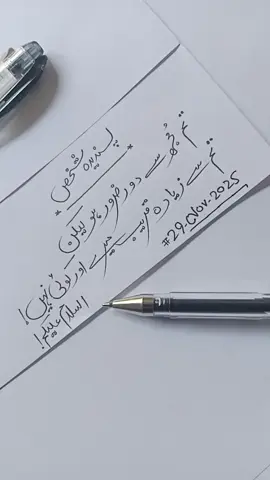 پسندیدہ شخص
تم مجھ سے دور ضرور ہو لیکن
تم سے زیادہ قریب میرے اور کوئی نہیں!
السلام علیکم!
#29-Nov-2025